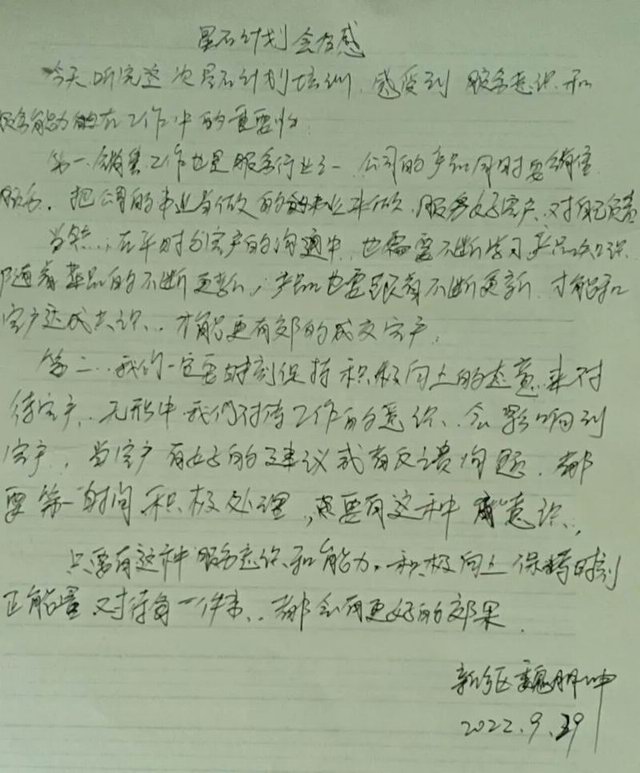 星石计划会后感
今天听完这次星石计划培训,感受到服务意识和
服务能力的在工作中的重要性.
第一.销售工作也是服务行业之一.公司的产品同时要销售
服务.把公司的事业当做的事业来做.服务好客户.对自己负责
当然..在平时与客户的沟通中.也需要不断学习产品知识
随着产品的不断更新,产品也要跟着不断更新.才能和
客户达成共识..才能更有效的成交客户.
第二..我们一定要时刻保持积极向上的态度.来对
待客户..无形中我们对待工作的意识、会影响到
客户,当客户有好的建议或有反馈问题.都
要第一时间积极处理,要有这种意识,
只要有这种服务意识和能力.积极向上保持时刻
正能量.对待每一件事..都会有更好的效果.
魏朋坤
2022.9.29